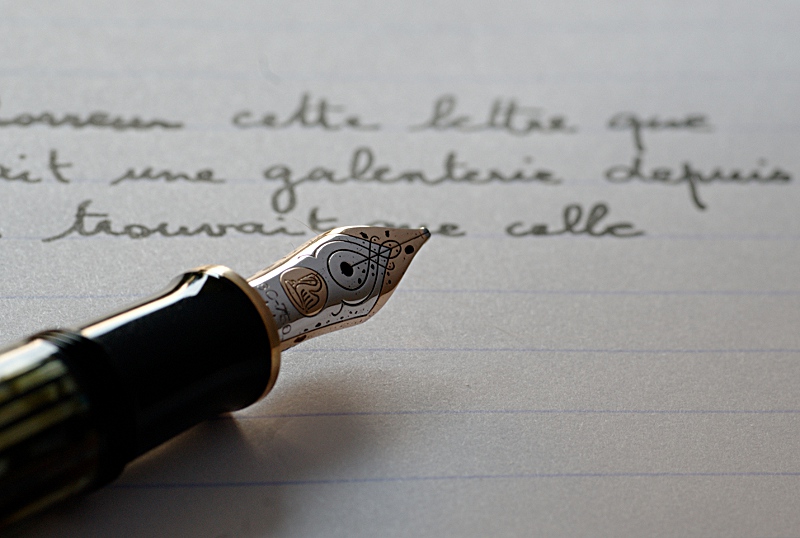 cette lettre que
ait une galenterie depuis
trouvait que celle